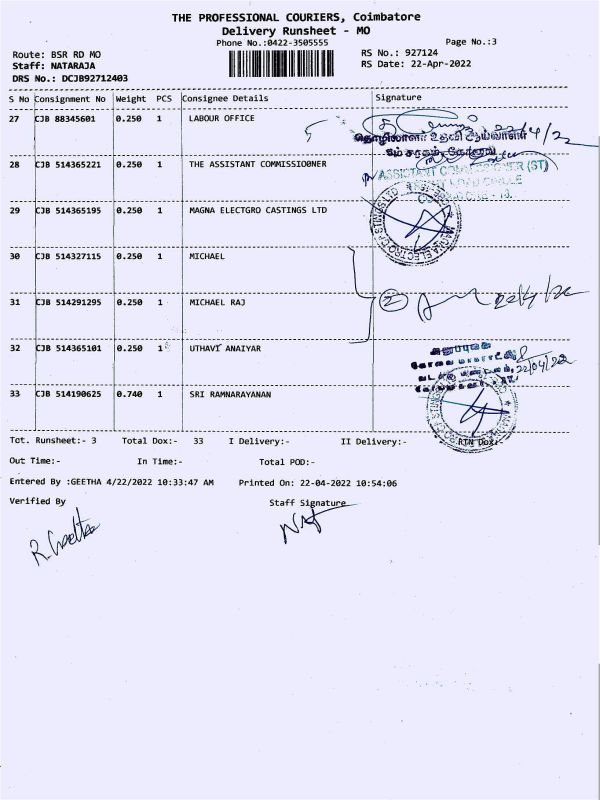 THE PROFESSIONAL COURIERS, Coimbatore
Delivery Runsheet - MO
Phone No.:0422-3505555
Page No.:3
Route: BSR RD MO
RS No.: 927124
Staff: NATARAJA
RS Date: 22-Apr-2022
DRS No.: DCJB92712403
S No Consignment No Weight PCS Consignee Details Signature
27 CJB 88345601 0.250 1 LABOUR OFFICE
22/4/22
தொழிலாளர் உதவி ஆய்வாளர்
28 CJB 514365221 0.250 1 THE ASSISTANT COMMISSIO0NER
ASSISTANT COMMISSIONER (ST)
29 CJB 514365195 0.250 1 MAGNA ELECTGRO CASTINGS LTD
MAGNA ELECTRO CASTINGS LTD
30 CJB 514327115 0.250 1 MICHAEL
31 CJB 514291295 0.250 1 MICHAEL RAJ
2 22/4/22
32 CJB 514365101 0.250 1 UTHAVI ANAIYAR
22/04/22
33 CJB 514190625 0.740 1 SRI RAMNARAYANAN
Tot. Runsheet:- 3 Total Dox:- 33 I Delivery:- II Delivery:- RTN Dox:-
Out Time:- In Time:- Total POD:-
Entered By :GEETHA 4/22/2022 10:33:47 AM Printed On: 22-04-2022 10:54:06
Verified By Staff Signature
R. Geetha